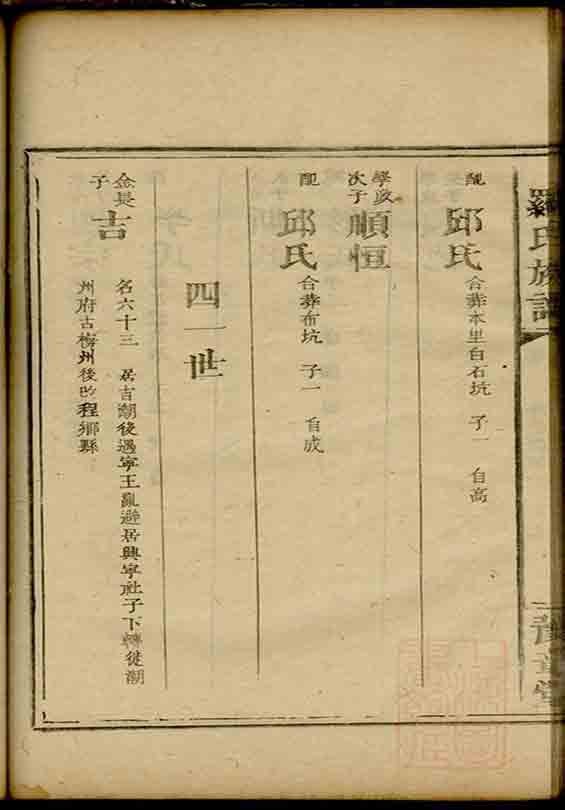 羅氏族譜
豫章堂
配 邱氏 合葬本里白石坑 子一 自高
學政次子 順恒
配 邱氏 合葬布坑 子一 自成
四一世
金長子 吉 名六十三 居吉潮後遇寧王亂避居興寧社子下轉徙潮
州府古梅州後改程鄉縣